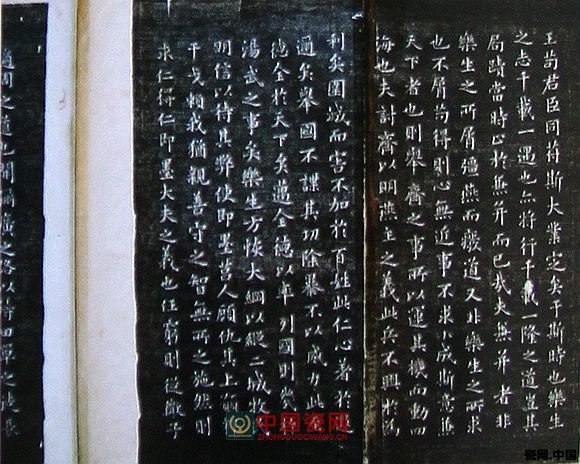 王苟君臣同苻斯大業定矣于斯時也樂生
之志千載一遇也亦將行千載一隆之道豈其
局蹟當時止於兼并而已哉夫兼并者非
樂生之所屑彊燕而廢道又非樂生之所求
也不屑苟得則心無近事不求小成斯意兼
天下者也則舉齊之事所以運其機而動四
海也夫討齊以明燕主之義此兵不興於為
利矣圍城而害不加於百姓此仁心著於遐
邇矣舉國不謀其功除暴不以威力此至
德全於天下矣邁全德以率列國則幾於
湯武之事矣樂生方恢大綱以縱二城收
明信以待其弊使即墨莒人顧仇其上願
干戈賴我猶親善守之智無所之施然則
求仁得仁即墨大夫之義也任窮則從微子
適周之道也開彌廣之路以待田單之徒長
中国瓷网
ZHONGGUOCIWANG.CN
瓷网.中国